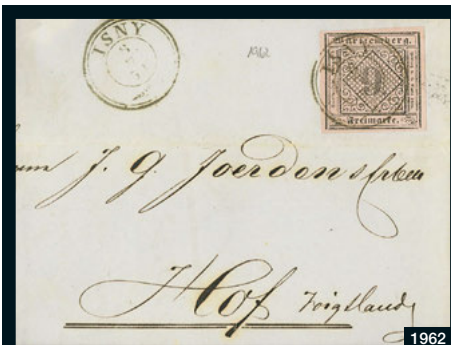 ISNY
1962
Württemberg.
ISNY
9
Freimarke.
J. G. Joerdens Erben
Hof Voigtland
1962